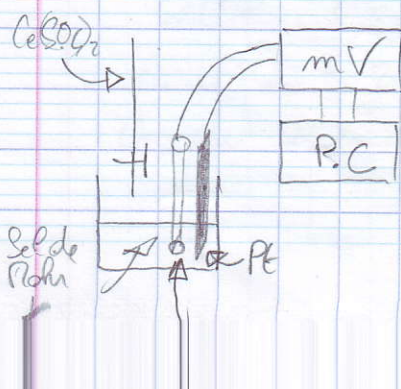 Ce(SO4)2
mV
P.C
Sel de
Mohr
Pt